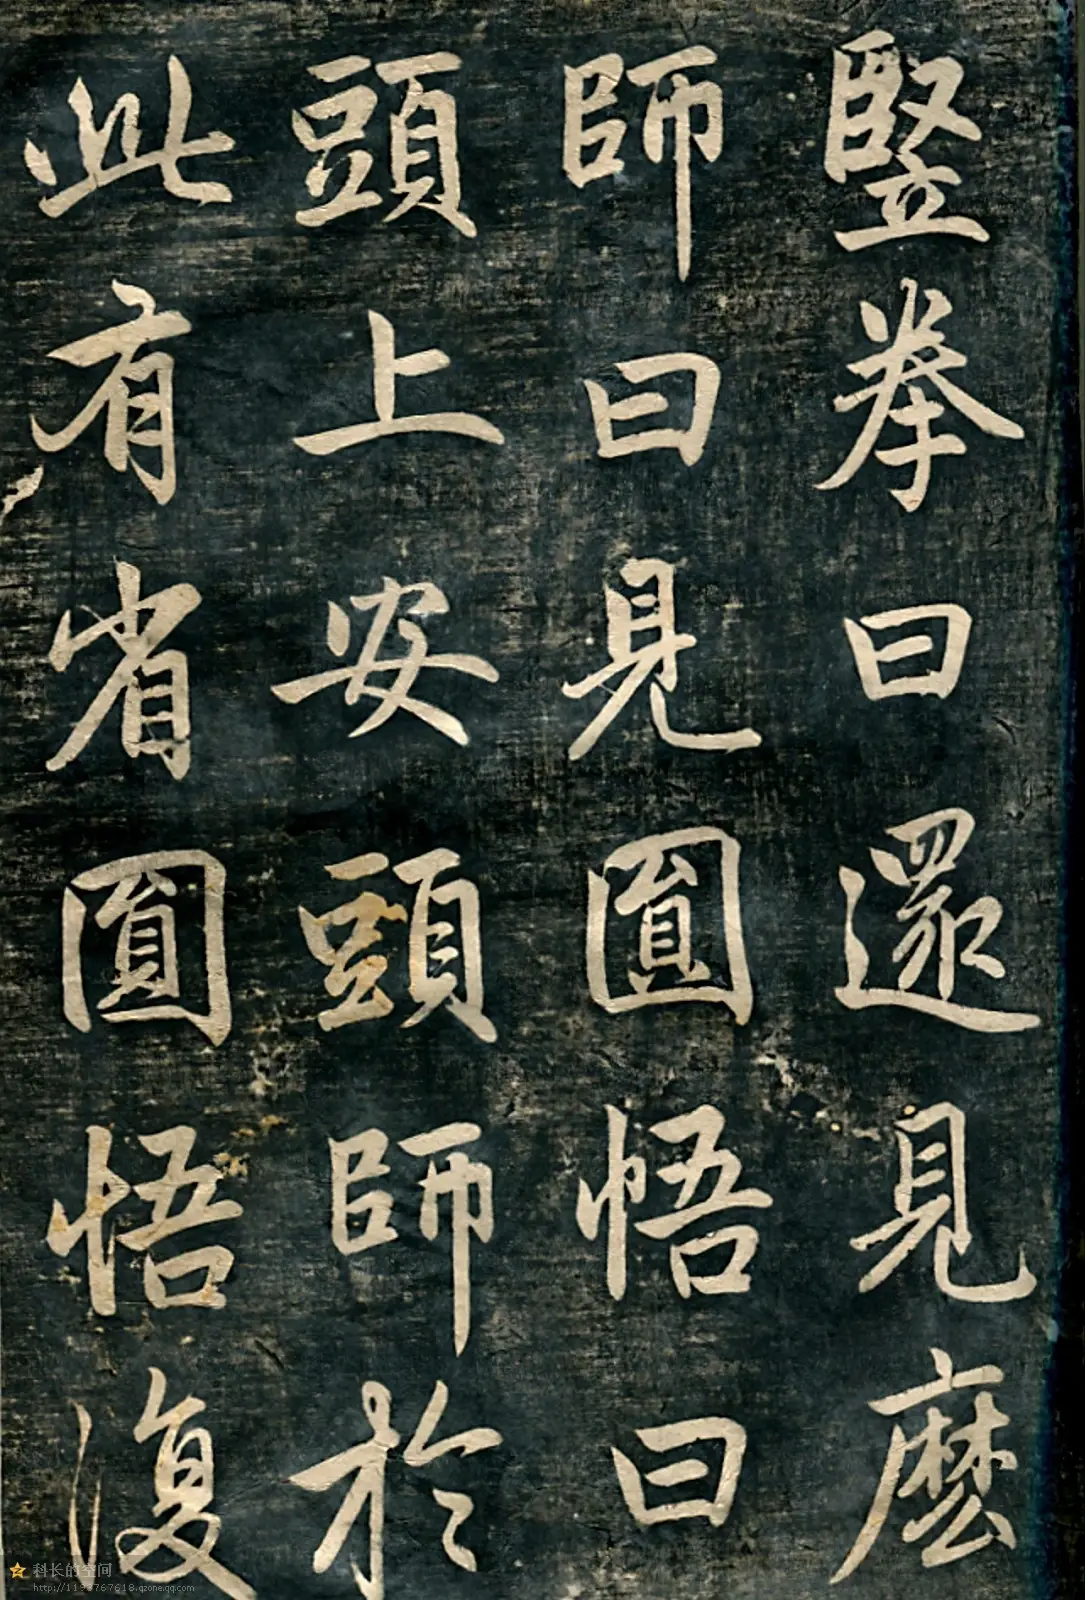 竪拳曰還見麽
師曰見圓悟曰
頭上安頭師於
此有省圓悟復
科长的空间
http://1193767618.qzone.qq.com